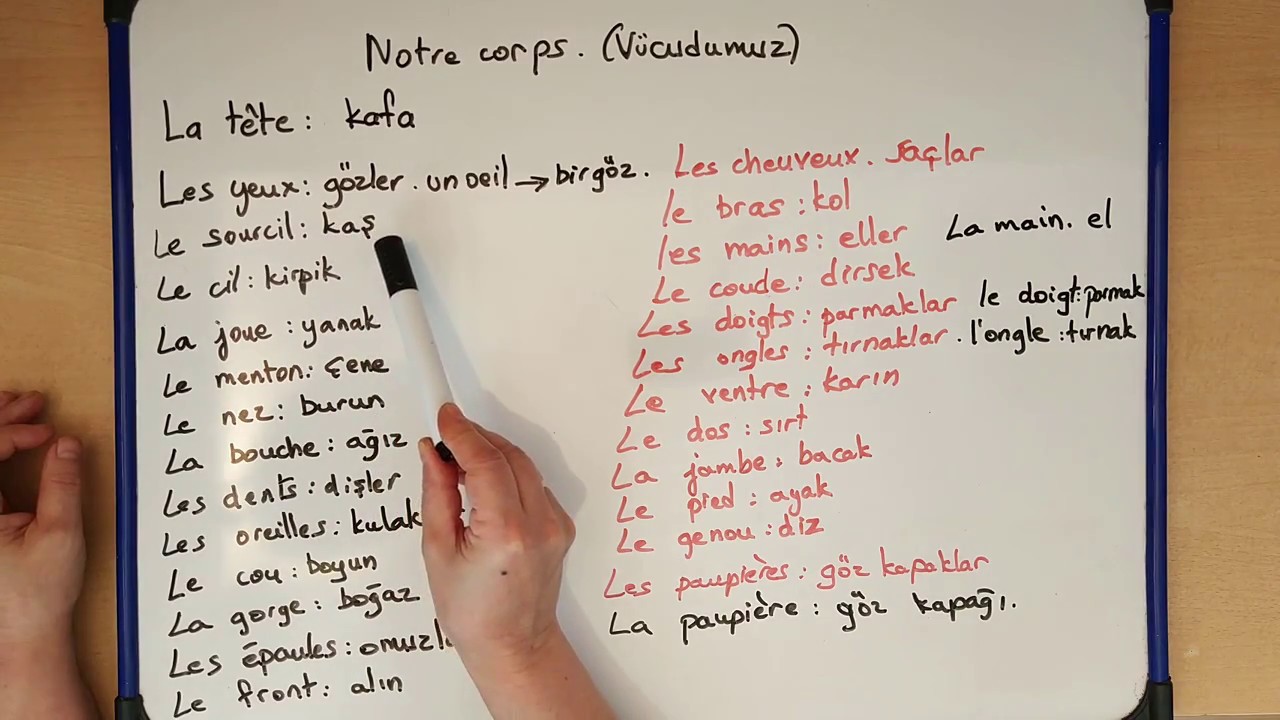 Notre corps. (Vücudumuz)
La tête: kafa
Les yeux: gözler. un oeil → bir göz.
Le sourcil: kaş
Le cil: kirpik
La joue: yanak
Le menton: çene
Le nez: burun
La bouche: ağız
Les dents: dişler
Les oreilles: kulak
Le cou: boyun
La gorge: boğaz
Les épaules: omuzl
Le front: alın
Les cheuveux. saçlar
le bras: kol
les mains: eller La main. el
Le coude: dirsek
Les doigts: parmaklar le doigt: parmak
Les ongles: tırnaklar. l'ongle: tırnak
Le ventre: karın
Le dos: sırt
La jambe: bacak
Le pied: ayak
Le genou: diz
Les paupières: göz kapaklar
La paupière: göz kapağı.